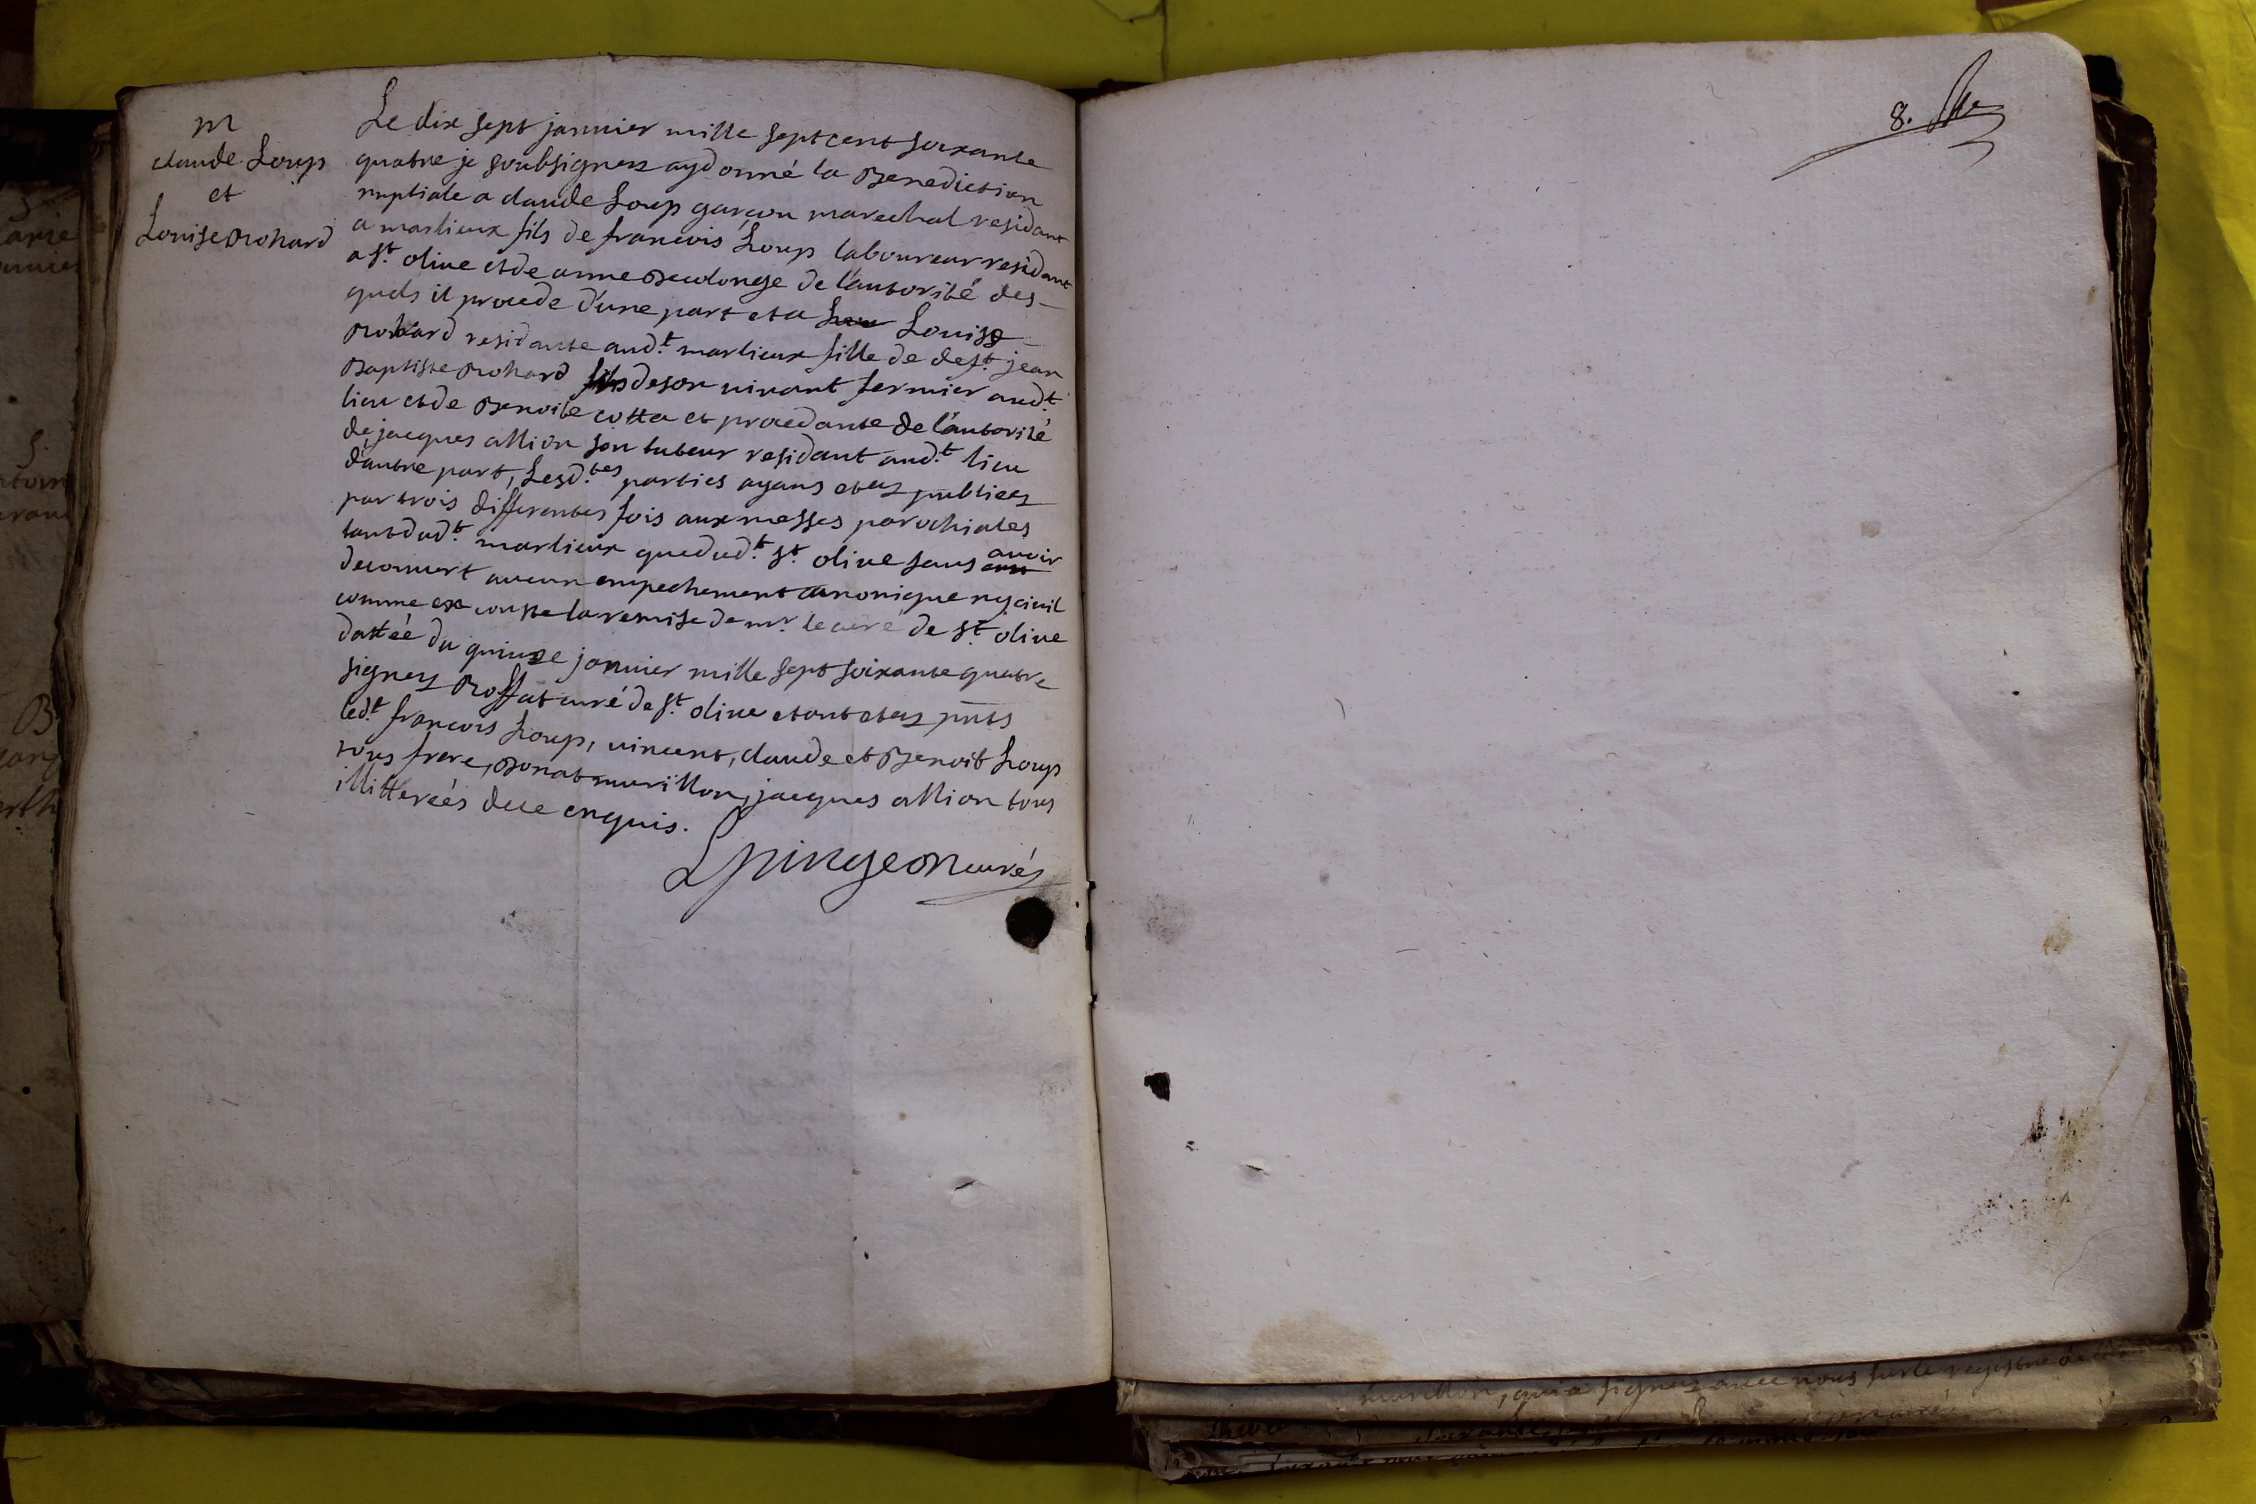 m
claude Loup
et
Louise Bohard
Le dix sept januier mille sept cent soixante
quatre je soubsignez ay donné la Benediction
nuptiale a claude Loup garçon marechal residant
a marlieux fils de francois Loup laboureur residant
a st. oliue et de anne Decolonge de l'autorité des-
quels il procede d'une part et a Lou Louise
Bohard residante aud.t marlieux fille de deft. jean
Baptiste Bohard fils de son uiuant fermier aud.t
lieu et de Benoite cotta et procedante de l'autorité
de jacques allion son tuteur residant aud.t lieu
d'autre part, Lesd.tes parties ayans etez publiez
par trois differentes fois aux messes parochiales
tant dud.t marlieux que dud.t st. oliue sans auoir
decouuert aucun empechement canonique ny ciuil
comme conste la remise de mr. le curé de st. oliue
dattéé du quinze januier mille sept soixante quatre
signez Boffat curé de st. oliue et ont etez pnts
led.t francois Loup, uincent, claude et Benoit Loup
tous frere, Bonat murillon, jacques allion tous
illitterés de ce enquis.
Lpingeon curéz
8.